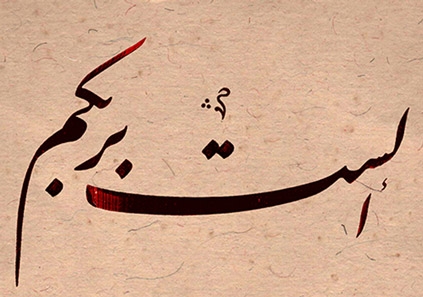 ألست بربكم